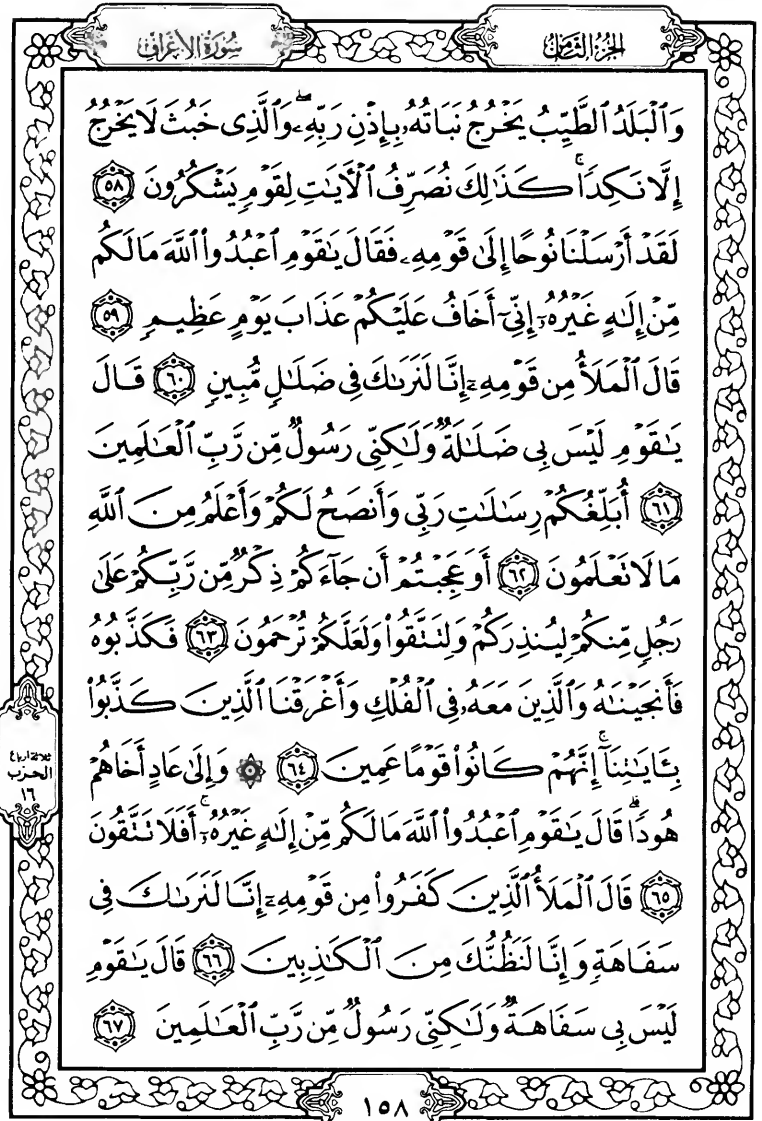 الجزء الثامن
سورة الأعراف
وَٱلْبَلَدُ ٱلطَّيِّبُ يَخْرُجُ نَبَاتُهُۥ بِإِذْنِ رَبِّهِۦۖ وَٱلَّذِى خَبُثَ لَا يَخْرُجُ
إِلَّا نَكِدًاۚ كَذَٰلِكَ نُصَرِّفُ ٱلْأَيَٰتِ لِقَوْمٍ يَشْكُرُونَ ٥٨
لَقَدْ أَرْسَلْنَا نُوحًا إِلَىٰ قَوْمِهِۦ فَقَالَ يَٰقَوْمِ ٱعْبُدُوا۟ ٱللَّهَ مَا لَكُم
مِّنْ إِلَٰهٍ غَيْرُهُۥٓ إِنِّىٓ أَخَافُ عَلَيْكُمْ عَذَابَ يَوْمٍ عَظِيمٍ ٥٩
قَالَ ٱلْمَلَأُ مِن قَوْمِهِۦٓ إِنَّا لَنَرَىٰكَ فِى ضَلَٰلٍ مُّبِينٍ ٦٠ قَالَ
يَٰقَوْمِ لَيْسَ بِى ضَلَٰلَةٌ وَلَٰكِنِّى رَسُولٌ مِّن رَّبِّ ٱلْعَٰلَمِينَ
٦١ أُبَلِّغُكُمْ رِسَٰلَٰتِ رَبِّى وَأَنصَحُ لَكُمْ وَأَعْلَمُ مِنَ ٱللَّهِ
مَا لَا تَعْلَمُونَ ٦٢ أَوَعَجِبْتُمْ أَن جَآءَكُمْ ذِكْرٌ مِّن رَّبِّكُمْ عَلَىٰ
رَجُلٍ مِّنكُمْ لِيُنذِرَكُمْ وَلِتَتَّقُوا۟ وَلَعَلَّكُمْ تُرْحَمُونَ ٦٣ فَكَذَّبُوهُ
فَأَنجَيْنَٰهُ وَٱلَّذِينَ مَعَهُۥ فِى ٱلْفُلْكِ وَأَغْرَقْنَا ٱلَّذِينَ كَذَّبُوا۟
بِـَٔايَٰتِنَآۚ إِنَّهُمْ كَانُوا۟ قَوْمًا عَمِينَ ٦٤ ۞ وَإِلَىٰ عَادٍ أَخَاهُمْ
هُودًاۗ قَالَ يَٰقَوْمِ ٱعْبُدُوا۟ ٱللَّهَ مَا لَكُم مِّنْ إِلَٰهٍ غَيْرُهُۥٓۚ أَفَلَا تَتَّقُونَ
٦٥ قَالَ ٱلْمَلَأُ ٱلَّذِينَ كَفَرُوا۟ مِن قَوْمِهِۦٓ إِنَّا لَنَرَىٰكَ فِى
سَفَاهَةٍ وَإِنَّا لَنَظُنُّكَ مِنَ ٱلْكَٰذِبِينَ ٦٦ قَالَ يَٰقَوْمِ
لَيْسَ بِى سَفَاهَةٌ وَلَٰكِنِّى رَسُولٌ مِّن رَّبِّ ٱلْعَٰلَمِينَ ٦٧
ثلاثة أرباع
الحزب
١٦
١٥٨